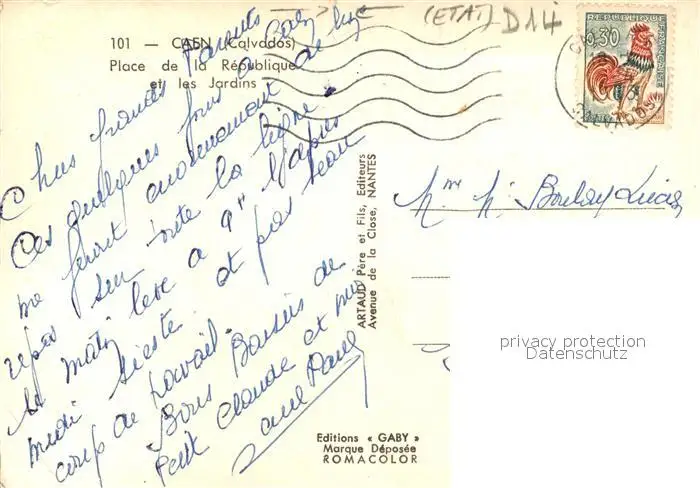 (ETAT) D14
101 — CAEN (Calvados)
Place de la République
et les Jardins
REPUBLIQUE
FRANCAISE
0,30
CALVADOS
Chers grands Parents
Ces quelques jours à Caen
me feront énormément de
repos sur toute la ligne.
Le matin levé à 9h l'après
midi sieste. et pas beau
coup de travail.
Bons Baisers de
Petit Claude et
Mme M. Boulay Lucas
ARTAUD Père et Fils, Editeurs
Avenue de la Close, NANTES
Editions « GABY »
Marque Déposée
ROMACOLOR
privacy protection
Datenschutz